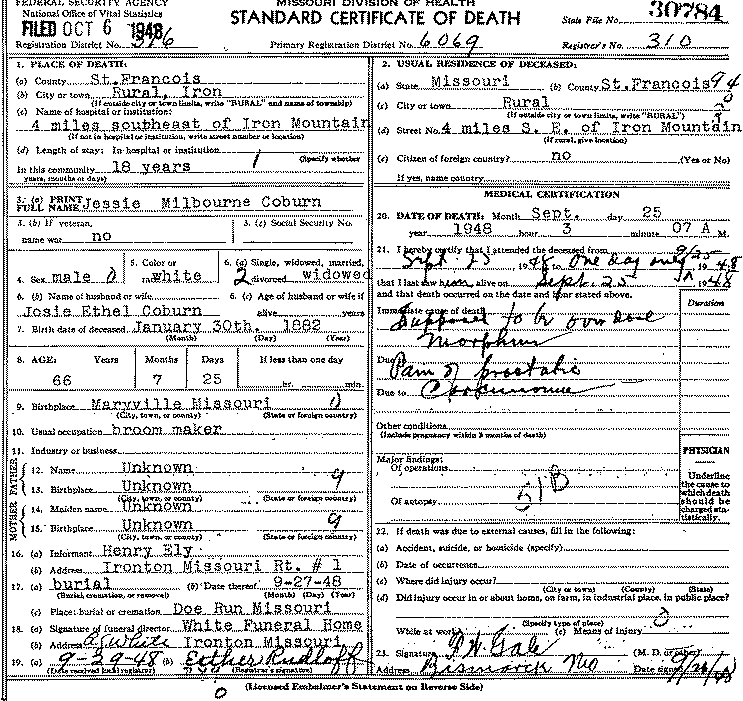 FEDERAL SECURITY AGENCY
National Office of Vital Statistics
MISSOURI DIVISION OF HEALTH
STANDARD CERTIFICATE OF DEATH
State File No. 30784
FILED OCT 6 1948
Registration District No. 316
Primary Registration District No. 6069
Registrar's No. 310
1. PLACE OF DEATH:
(a) County St.Francois
(b) City or town Rural, Iron
(If outside city or town limits, write "RURAL" and name of township)
(c) Name of hospital or institution:
4 miles southeast of Iron Mountain
(If not in hospital or institution, write street number or location)
(d) Length of stay: In hospital or institution
(Specify whether
In this community 18 years
years, months or days)
2. USUAL RESIDENCE OF DECEASED:
(a) State Missouri (b) County St.Francois 94
(c) City or town Rural
(If outside city or town limits, write "RURAL")
(d) Street No. 4 miles S. E. of Iron Mountain
(If rural, give location)
(e) Citizen of foreign country? no (Yes or No)
If yes, name country
3. (a) PRINT
FULL NAME Jessie Milbourne Coburn
3. (b) If veteran,
name war no
3. (c) Social Security No.
4. Sex male
5. Color or
race white
6. (a) Single, widowed, married,
2 divorced widowed
6. (b) Name of husband or wife
Josie Ethel Coburn
6. (c) Age of husband or wife if
alive years
7. Birth date of deceased January 30th. 1882
(Month) (Day) (Year)
8. AGE: Years Months Days If less than one day
66 7 25 hr. min.
9. Birthplace Maryville Missouri
(City, town, or county) (State or foreign country)
10. Usual occupation broom maker
11. Industry or business
FATHER
12. Name Unknown
13. Birthplace Unknown 9
(City, town, or county) (State or foreign country)
MOTHER
14. Maiden name Unknown
15. Birthplace Unknown 9
(City, town, or county) (State or foreign country)
16. (a) Informant Henry Ely
(b) Address Ironton Missouri Rt. # 1
17. (a) burial (b) Date thereof 9-27-48
(Burial, cremation, or removal) (Month) (Day) (Year)
(c) Place: burial or cremation Doe Run Missouri
18. (a) Signature of funeral director White Funeral Home
(b) Address Ironton Missouri
19. (a) 9-29-48 (b) Esther Rudloff
(Date received local registrar) (Registrar's signature)
MEDICAL CERTIFICATION
20. DATE OF DEATH: Month Sept. day 25
year 1948 hour 3 minute 07 A M.
21. I hereby certify that I attended the deceased from 9/25
Sept. 25 1948 to One day only 1948
that I last saw him alive on Sept. 25 1948
and that death occurred on the date and hour stated above.
Duration
Immediate cause of death
Supposed to be over dose
Morphine
Due to
Pain of prostatic
Due to Carcinoma
Other conditions
(Include pregnancy within 3 months of death)
Major findings:
Of operations
51B
Of autopsy
PHYSICIAN
Underline
the cause to
which death
should be
charged sta-
tistically.
22. If death was due to external causes, fill in the following:
(a) Accident, suicide, or homicide (specify)
(b) Date of occurrence
(c) Where did injury occur?
(City or town) (County) (State)
(d) Did injury occur in or about home, on farm, in industrial place, in public place?
(Specify type of place)
While at work? (e) Means of injury
23. Signature Gale (M. D. or other)
Address Bismarck Mo Date signed
(Licensed Embalmer's Statement on Reverse Side)